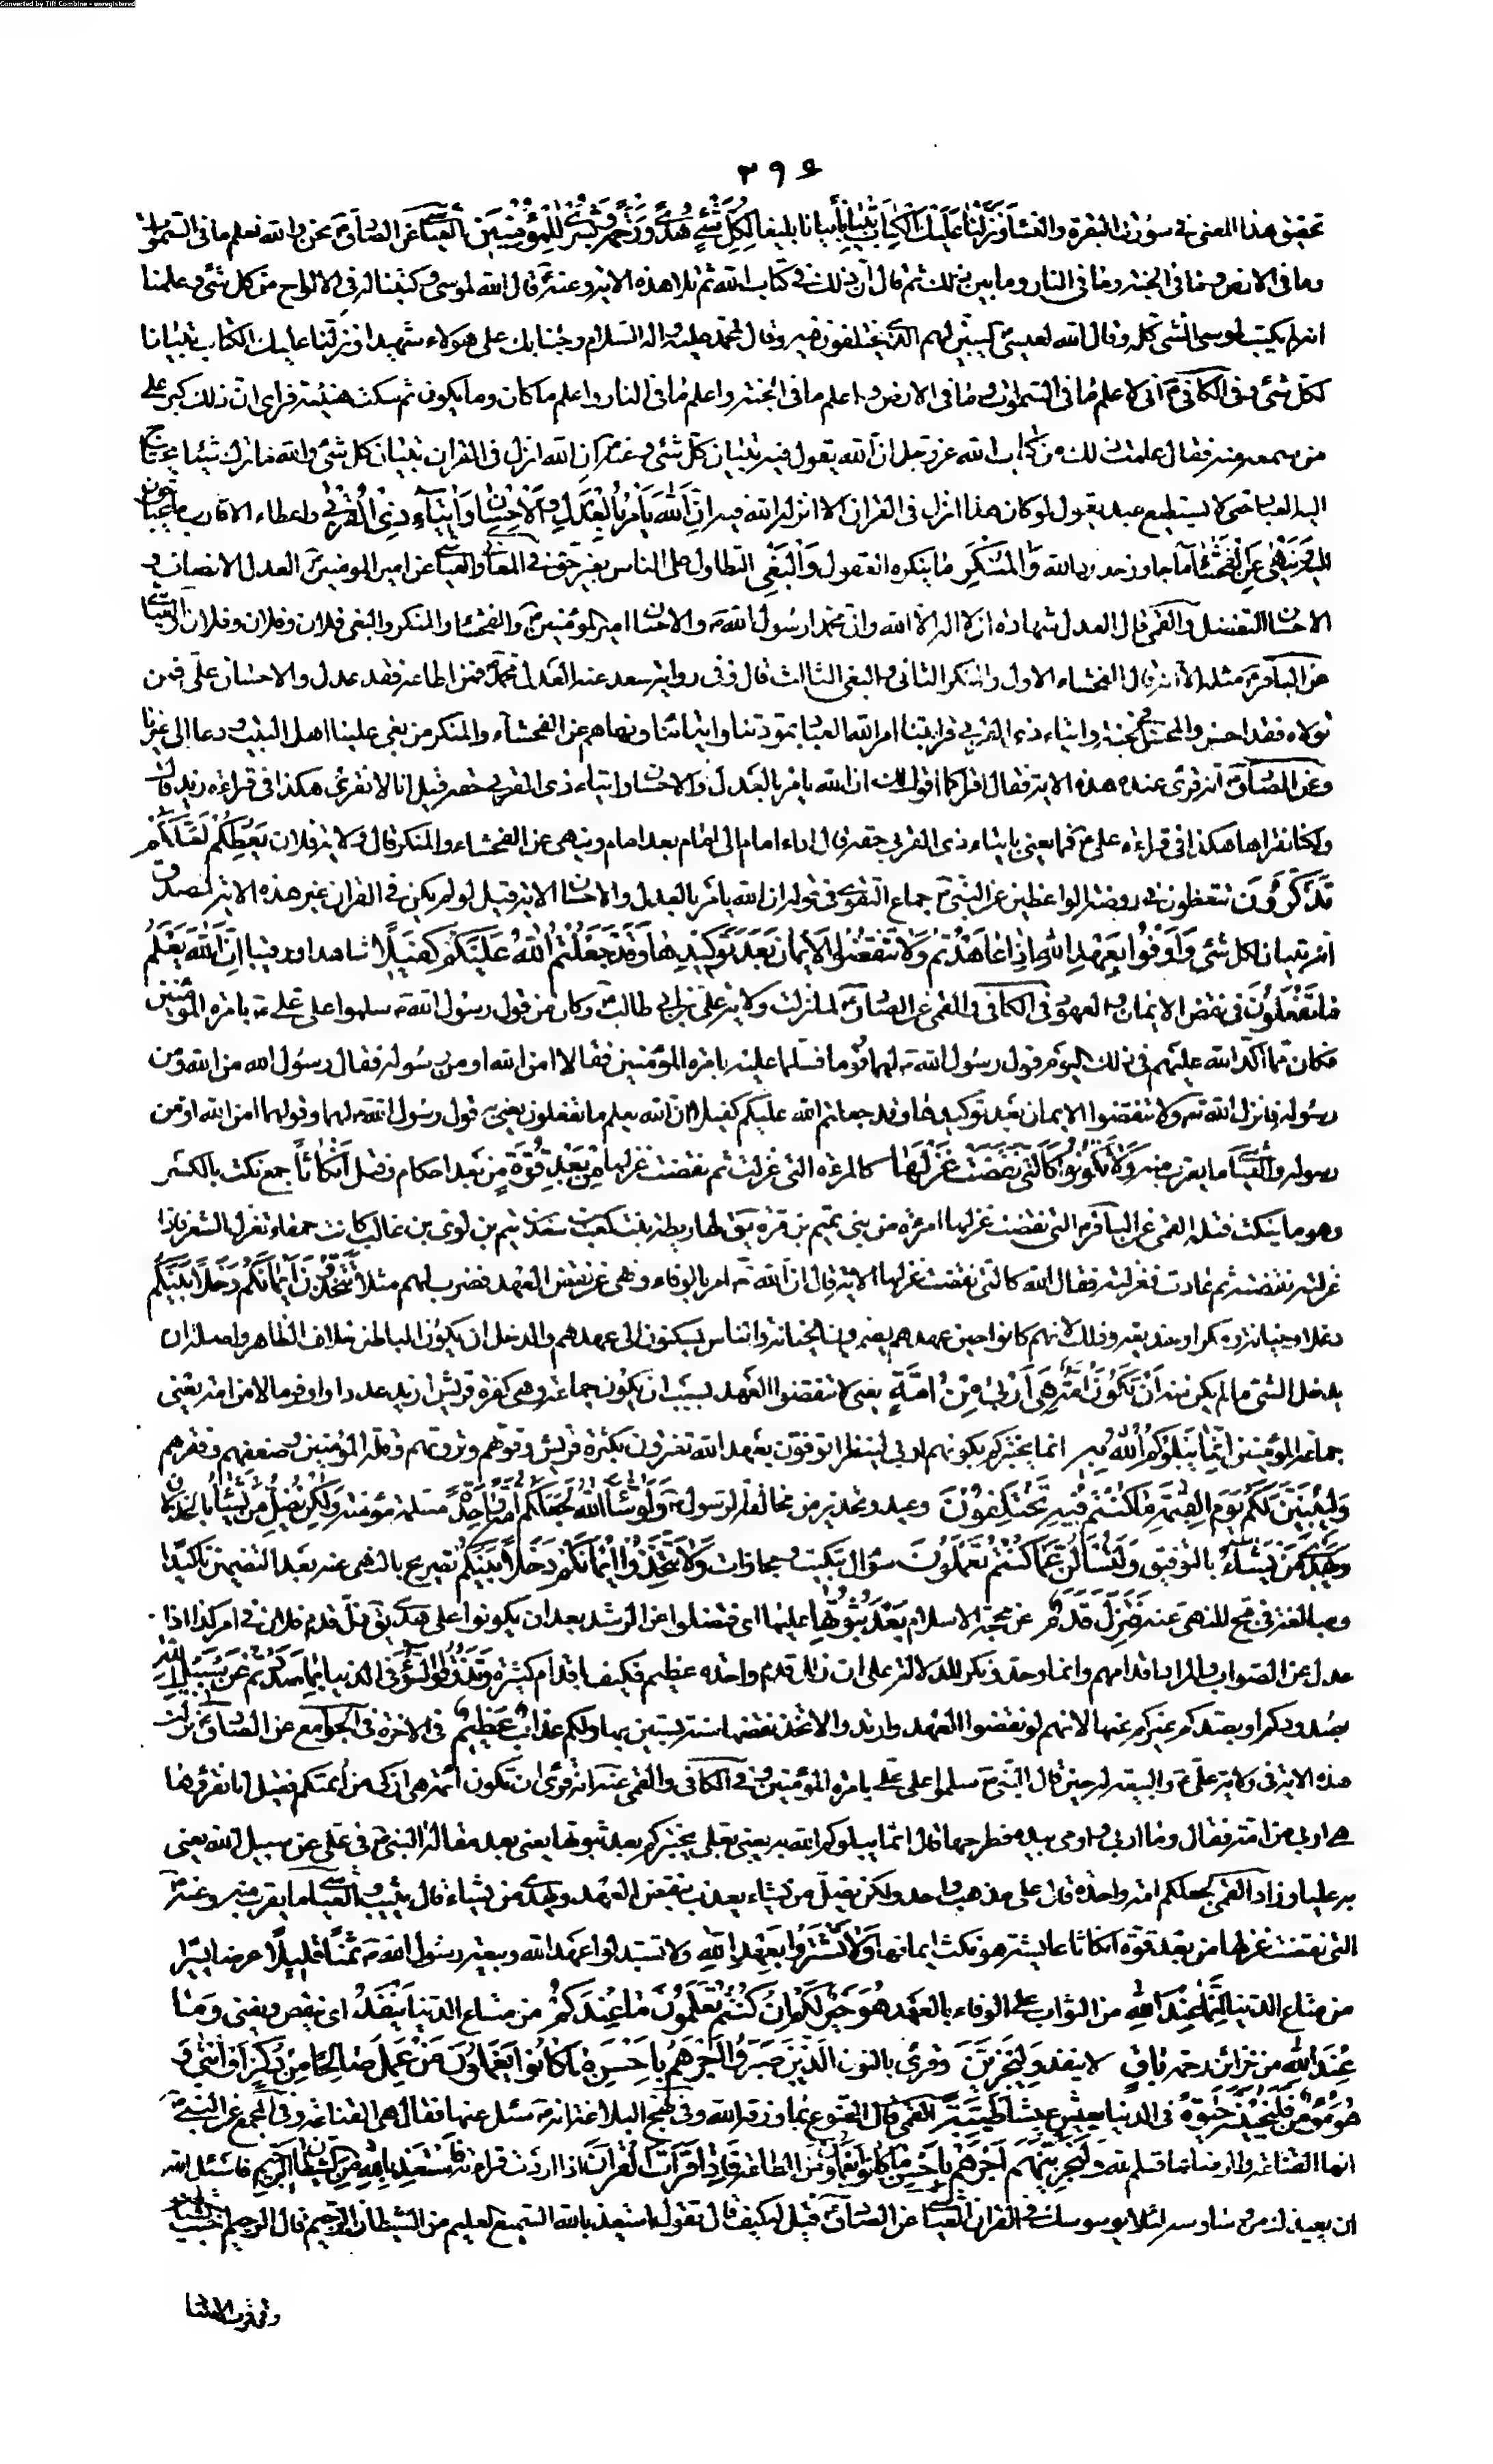 Converted by Tiff Combine - unregistered
٣٩٤
تحقيق هذا المعنى فى سورة البقرة والنساء وَنَزَّلْنَا عَلَيْكَ الْكِتَابَ تِبْيَانًا بيانا بليغا لِكُلِّ شَىْءٍ وَهُدًى وَرَحْمَةً وَبُشْرَى لِلْمُؤْمِنِينَ العياشى عن الصادق ع نحن والله نعلم ما فى السموات
وما فى الارض وما فى الجنة وما فى النار وما بين ذلك ثم قال ان ذلك فى كتاب الله ثم تلا هذه الاية وعنه ع قال الله لموسى وكتبنا له فى الالواح من كل شئ فعلمنا
انه لم يكتب لموسى الشئ كله وقال الله لعيسى ليبين لهم الذى يختلفون فيه وقال لمحمد عليه واله السلام وجئنا بك على هؤلاء شهيدا ونزلنا عليك الكتاب تبيانا
لكل شئ وفى الكافى ع انى لاعلم ما فى السموات وما فى الارض واعلم ما فى الجنة واعلم ما فى النار واعلم ما كان وما يكون ثم سكت هنيئة فراى ان ذلك كبر على
من سمعه منه فقال علمت ذلك من كتاب الله عز وجل ان الله يقول فيه تبيان كل شئ وعنه ع ان الله انزل فى القران تبيان كل شئ والله ما ترك شيئا يحتاج
اليه العباد حتى لا يستطيع عبد يقول لو كان هذا انزل فى القران الا انزله الله فيه اِنَّ اللهَ يَأْمُرُ بِالْعَدْلِ وَالْاِحْسَانِ وَاِيتَاءِ ذِى الْقُرْبَى واعطاء الاقارب ما يحتاجون
اليه وَيَنْهَى عَنِ الْفَحْشَاءِ ما جاوز حدود الله وَالْمُنْكَرِ ما ينكره العقول وَالْبَغْىِ التطاول على الناس بغير حق فى المعانى والعياشى عن امير المؤمنين ع العدل الانصاف و
الاحسان التفضل والقمى قال العدل شهادة ان لا اله الا الله وان محمدا رسول الله ص والاحسان امير المؤمنين ع والفحشاء والمنكر والبغى فلان وفلان وفلان العياشى
عن الباقر ع مثله الا انه قال الفحشاء الاول والمنكر الثانى والبغى الثالث قال وفى رواية سعد عنه العدل محمد فمن اطاعه فقد عدل والاحسان على فمن
تولاه فقد احسن والمحسن فى الجنة وايتاء ذى القربى قرابتنا امر الله العباد بمودتنا وايتائنا ونهاهم عن الفحشاء والمنكر من بغى علينا اهل البيت ودعا الى غيرنا
وعن الصادق ع انه قرئ عنده هذه الاية فقال اقرأ كما اقول لك ان الله يامر بالعدل والاحسان وايتاء ذى القربى حقه فقيل انا لا نقرئ هكذا فى قراءة زيد قال
ولكنا نقراها هكذا فى قراءة على ع قيل فما يعنى بايتاء ذى القربى حقه قال اداء امام الى امام بعد امام وينهى عن الفحشاء والمنكر قال ولاية فلان يَعِظُكُمْ لَعَلَّكُمْ
تَذَكَّرُونَ تتعظون فى روضة الواعظين عن النبى ص جماع التقوى فى قوله ان الله يامر بالعدل والاحسان الاية قيل لو لم يكن فى القران غير هذه الاية لصدق
انه تبيان لكل شئ وَاَوْفُوا بِعَهْدِ اللهِ اِذَا عَاهَدْتُمْ وَلَا تَنْقُضُوا الْاَيْمَانَ بَعْدَ تَوْكِيدِهَا وَقَدْ جَعَلْتُمُ اللهَ عَلَيْكُمْ كَفِيلًا شاهدا ورقيبا اِنَّ اللهَ يَعْلَمُ
مَا تَفْعَلُونَ فى نقض الايمان والعهود فى الكافى والقمى عن الصادق ع لما نزلت ولاية على بن ابى طالب ع وكان من قول رسول الله ص سلموا على على ع بامرة المؤمنين
فكان مما اكد الله عليهم فى ذلك اليوم قول رسول الله ص لهما قوما فسلما عليه بامرة المؤمنين فقالا امن الله او من رسوله فقال رسول الله من الله ومن
رسوله فانزل الله تعـ ولا تنقضوا الايمان بعد توكيدها وقد جعلتم الله عليكم كفيلا ان الله يعلم ما تفعلون يعنى به قول رسول الله ص لهما وقولهما امن الله او من
رسوله والعياشى ما يقرب منه وَلَا تَكُونُوا كَالَّتِى نَقَضَتْ غَزْلَهَا كالمرءة التى غزلت ثم نقضت غزلها مِنْ بَعْدِ قُوَّةٍ من بعد احكام وفتل اَنْكَاثًا جمع نكث بالكسر
وهو ما ينكث فتله القمى عن الباقر ع التى نقضت غزلها امرءة من بنى تميم بن مرة يق لها ريطة بنت كعب بن سعد بن تيم بن لوى بن غالب كانت حمقاء تغزل الشعر فاذا
غزلته نقضته ثم عادت فغزلته فقال الله كالتى نقضت غزلها الاية قال ان الله تعـ امر بالوفاء ونهى عن نقض العهد فضرب لهم مثلا تَتَّخِذُونَ اَيْمَانَكُمْ دَخَلًا بَيْنَكُمْ
دغلا وخيانة ومكرا وخديعة وذلك لانهم كانوا حين عهدهم يضمرون الخيانة والناس يسكنون الى عهدهم والدخل ان يكون الباطن خلاف الظاهر واصله ان
يدخل الشئ ما لم يكن منه اَنْ تَكُونَ اُمَّةٌ هِىَ اَرْبَى مِنْ اُمَّةٍ يعنى لا تنقضوا العهد بسبب ان يكون جماعة وهى كفرة قريش ازيد عددا واوفر مالا من امة يعنى
جماعة المؤمنين اِنَّمَا يَبْلُوكُمُ اللهُ بِهِ انما يختبركم بكونهم اربى لينظر اتوفون بعهد الله ام تغترون بكثرة قريش وقوتهم وثروتهم وقلة المؤمنين وضعفهم وفقرهم
وَلَيُبَيِّنَنَّ لَكُمْ يَوْمَ الْقِيمَةِ مَا كُنْتُمْ فِيهِ تَخْتَلِفُونَ وعيد وتحذير من مخالفة الرسول ص وَلَوْ شَاءَ اللهُ لَجَعَلَكُمْ اُمَّةً وَاحِدَةً مسلمة مؤمنة وَلَكِنْ يُضِلُّ مَنْ يَشَاءُ بالخذلان
وَيَهْدِى مَنْ يَشَاءُ بالتوفيق وَلَتُسْأَلُنَّ عَمَّا كُنْتُمْ تَعْمَلُونَ سؤال تبكيت ومجازات وَلَا تَتَّخِذُوا اَيْمَانَكُمْ دَخَلًا بَيْنَكُمْ تصريح بالنهى عنه بعد التضمين تاكيدا
ومبالغة فى قبح المنهى عنه فَتَزِلَّ قَدَمٌ عن محجة الاسلام بَعْدَ ثُبُوتِهَا عليها اى فتضلوا عن الرشد بعد ان يكونوا على هدى يق زل قدم فلان فى امر كذا اذا
عدل عن الصواب والمراد اقدامهم وانما وحد ونكر للدلالة على ان زلل قدم واحدة عظيم فكيف باقدام كثيرة وَتَذُوقُوا السُّوءَ فى الدنيا بِمَا صَدَدْتُمْ عَنْ سَبِيلِ اللهِ
بصدودكم او بصدكم غيركم عنها لانهم لو نقضوا العهد وارتدوا لاتخذ نقضها سنة يستن بها وَلَكُمْ عَذَابٌ عَظِيمٌ فى الاخرة فى الجوامع عن الصادق ع نزلت
هذه الاية فى ولاية على ع والبيعة له حين قال النبى ص سلموا على على بامرة المؤمنين وفى الكافى والقمى عنه ع انه قرئ ان تكون ائمة هى ازكى من ائمتكم فقيل انا نقرؤها
هى اربى من امة فقال وما اربى واومى بيده فطرحها قال انما يبلوكم الله به يعنى بعلى يختبركم بعد ثبوتها يعنى بعد مقالة النبى ص فى على عن سبيل الله يعنى
به عليا وزاد القمى لجعلكم امة واحدة قال على مذهب واحد ولكن يضل من يشاء يعذب بنقض العهد ويهدى من يشاء قال يثيب والعياشى ما يقرب منه وعنه ع
التى نقضت غزلها من بعد قوة انكاثا عايشة هو نكث ايمانها وَلَا تَشْتَرُوا بِعَهْدِ اللهِ ولا تستبدلوا عهد الله وبيعة رسول الله ص ثَمَنًا قَلِيلًا عرضا يسيرا
من متاع الدنيا اِنَّمَا عِنْدَ اللهِ من الثواب على الوفاء بالعهد هُوَ خَيْرٌ لَكُمْ اِنْ كُنْتُمْ تَعْلَمُونَ مَا عِنْدَكُمْ من متاع الدنيا يَنْفَدُ اى ينقص ويفنى وَمَا
عِنْدَ اللهِ من خزائن رحمته بَاقٍ لا ينفد وَلَيَجْزِيَنَّ وقرئ بالنون الَّذِينَ صَبَرُوا اَجْرَهُمْ بِاَحْسَنِ مَا كَانُوا يَعْمَلُونَ مَنْ عَمِلَ صَالِحًا مِنْ ذَكَرٍ اَوْ اُنْثَى وَ
هُوَ مُؤْمِنٌ فَلَنُحْيِيَنَّهُ حَيَوةً فى الدنيا يعيش عيشا طَيِّبَةً القمى قال القنوع بما رزقه الله وفى نهج البلاغة انه ع سئل عنها فقال هى القناعة وفى المجمع عن النبى ص
انها القناعة والرضا بما قسم الله وَلَنَجْزِيَنَّهُمْ اَجْرَهُمْ بِاَحْسَنِ مَا كَانُوا يَعْمَلُونَ من الطاعة فَاِذَا قَرَأْتَ الْقُرْانَ اذا اردت قراءته فَاسْتَعِذْ بِاللهِ مِنَ الشَّيْطَانِ الرَّجِيمِ فاسئل الله
ان يعيذك من وساوسه لئلا يوسوسك فى القران العياشى عن الصادق ع قيل له كيف قال تقول استعيذ بالله السميع العليم من الشيطان الرجيم قال الرجيم اخبث الشياطين